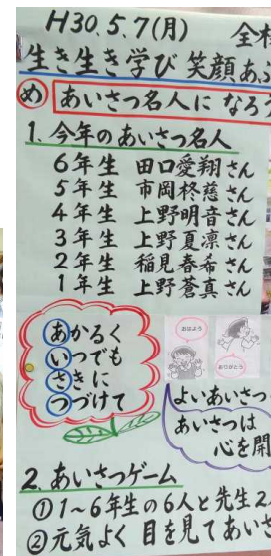 H30.5.7(月) 全校
生き生き学び 笑顔あふ
め あいさつ名人に なろう
1. 今年のあいさつ名人
6年生 田口愛翔さん
5年生 市岡柊慈さん
4年生 上野明音さん
3年生 上野夏凛さん
2年生 稲見春希さん
1年生 上野蒼真さん
あかるく
いつでも
さきに
つづけて
おはよう
ありがとう
よいあいさつ
あいさつは
心を開
2. あいさつゲーム
①1~6年生の6人と先生2
②元気よく 目を見てあいさ